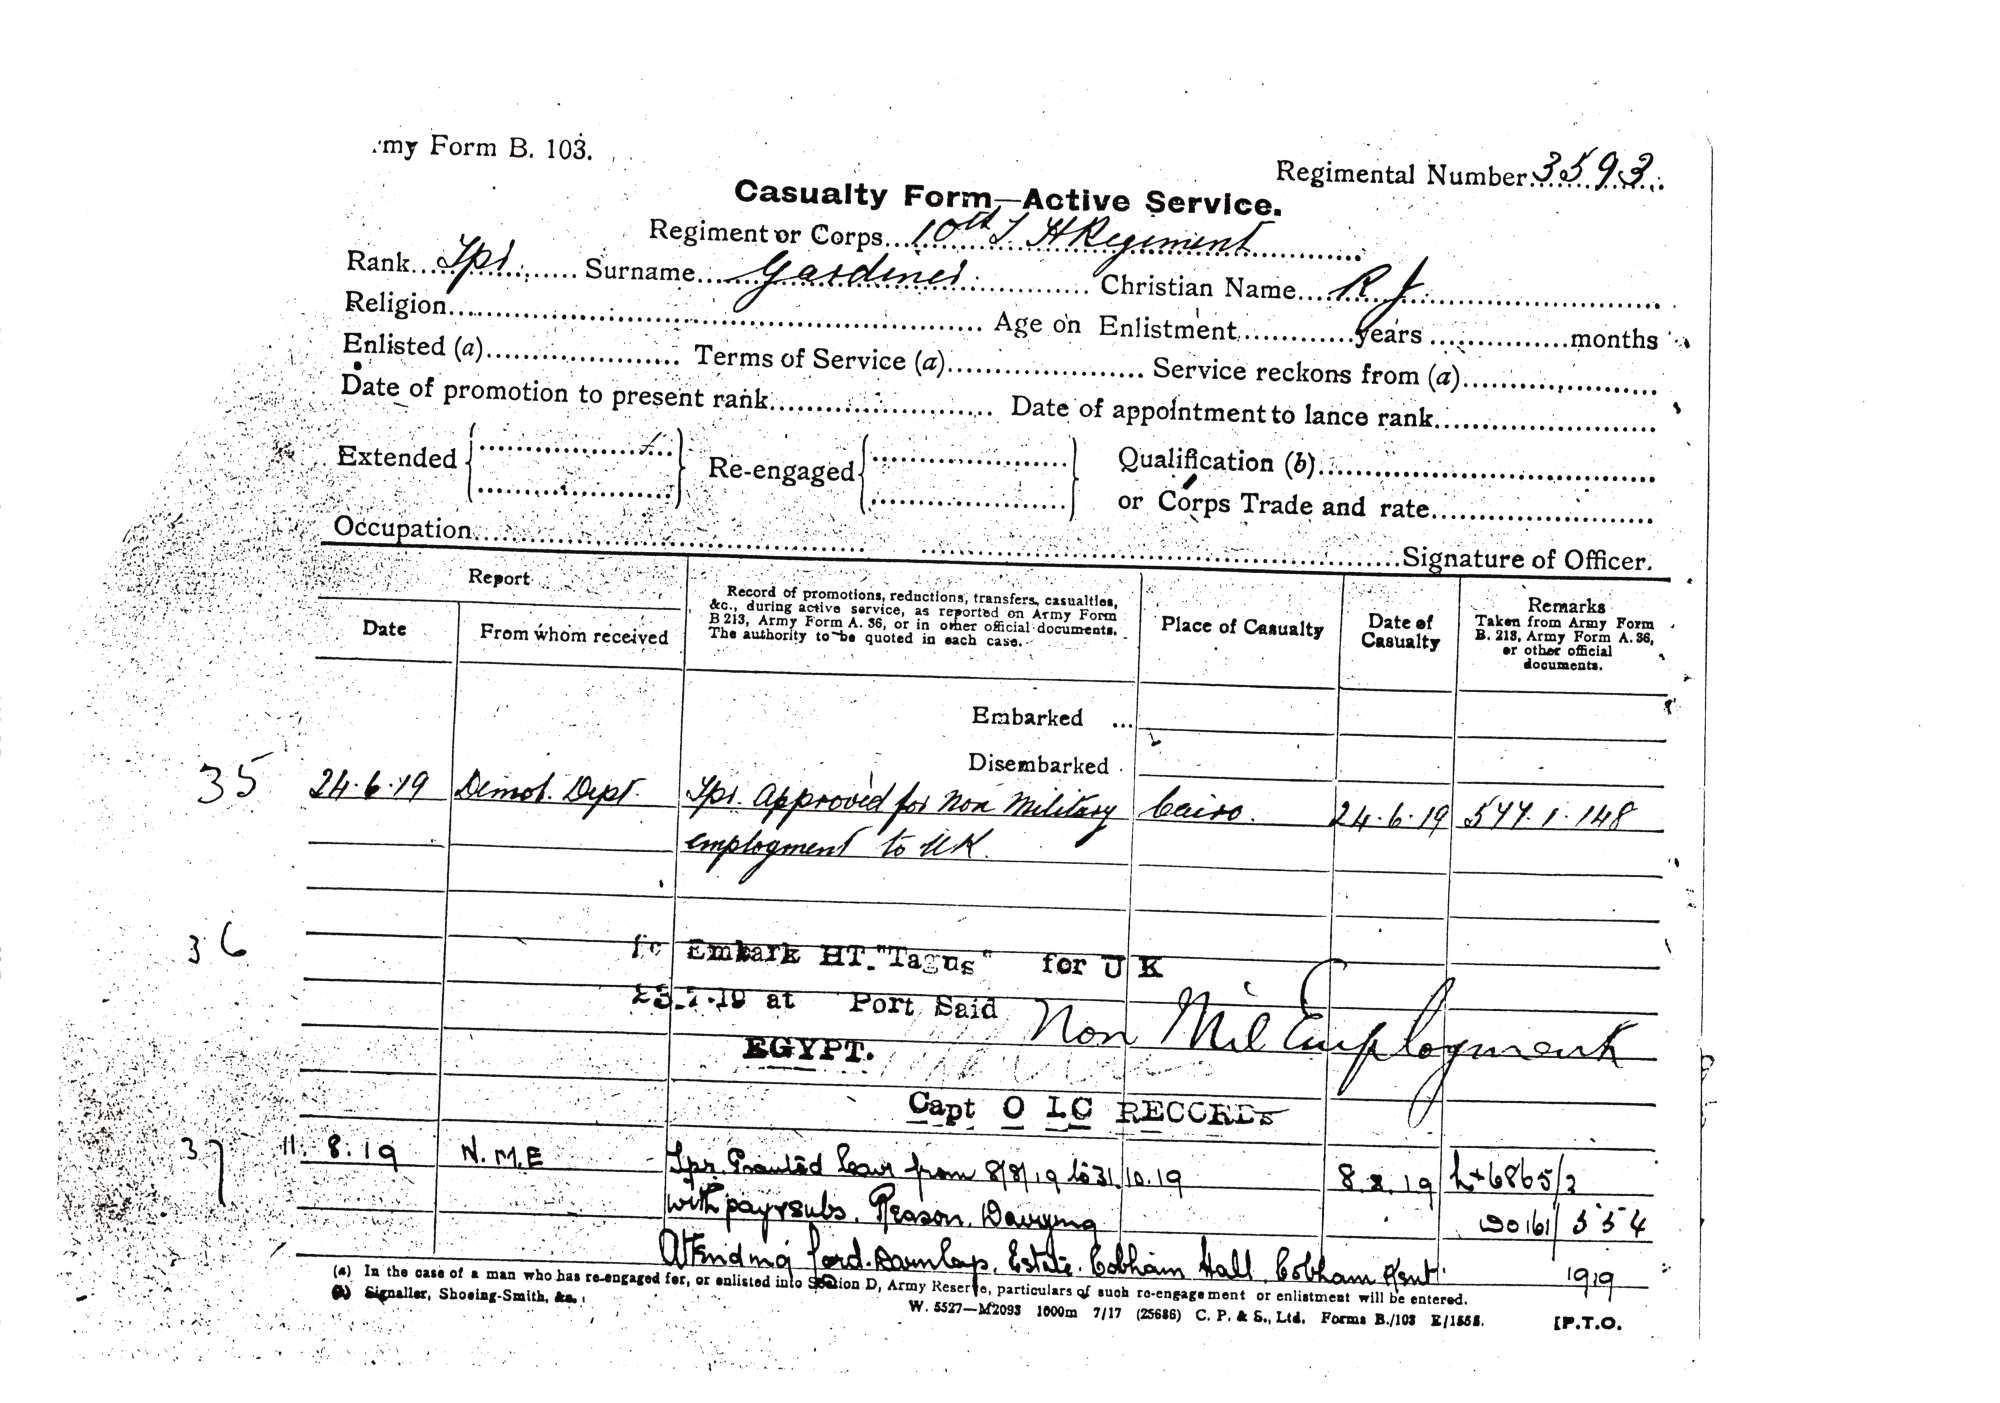 my Form B. 103.
Regimental Number 3593
Casualty Form—Active Service.
Regiment or Corps 10th L H Regiment
Rank Tpr Surname Gardiner Christian Name R J
Religion Age on Enlistment years months
Enlisted (a) Terms of Service (a) Service reckons from (a)
Date of promotion to present rank Date of appointment to lance rank
Extended Re-engaged Qualification (b)
or Corps Trade and rate
Occupation Signature of Officer.
Report
Date
From whom received
Record of promotions, reductions, transfers, casualties,
&c., during active service, as reported on Army Form
B 213, Army Form A. 36, or in other official documents.
The authority to be quoted in each case.
Place of Casualty
Date of
Casualty
Remarks
Taken from Army Form
B. 213, Army Form A. 36,
or other official
documents.
Embarked ...
Disembarked
35 24.6.19 Demob. Dept. Tpr. Approved for Non Military Cairo. 24.6.19 577.1.148
employment to UK.
36
Embark HT. "Tagus" for U K
23.7.19 at Port Said Non Mil Employment
EGYPT.
Capt O I C RECORDS
37 11.8.19 N.M.E Tpr. Granted leave from 8/8/19 to 31.10.19 8.8.19
with pay & subs. Reason. 554
Attending Lord Estate. Cobham Hall. Cobham Kent. 1919
(a) In the case of a man who has re-engaged for, or enlisted into Section D, Army Reserve, particulars of such re-engagement or enlistment will be entered.
(b) Signaller, Shoeing-Smith, &c.
W. 5527—M2093 1000m 7/17 (25686) C. P. & S., Ltd. Forms B./103 E/1558.
[P.T.O.